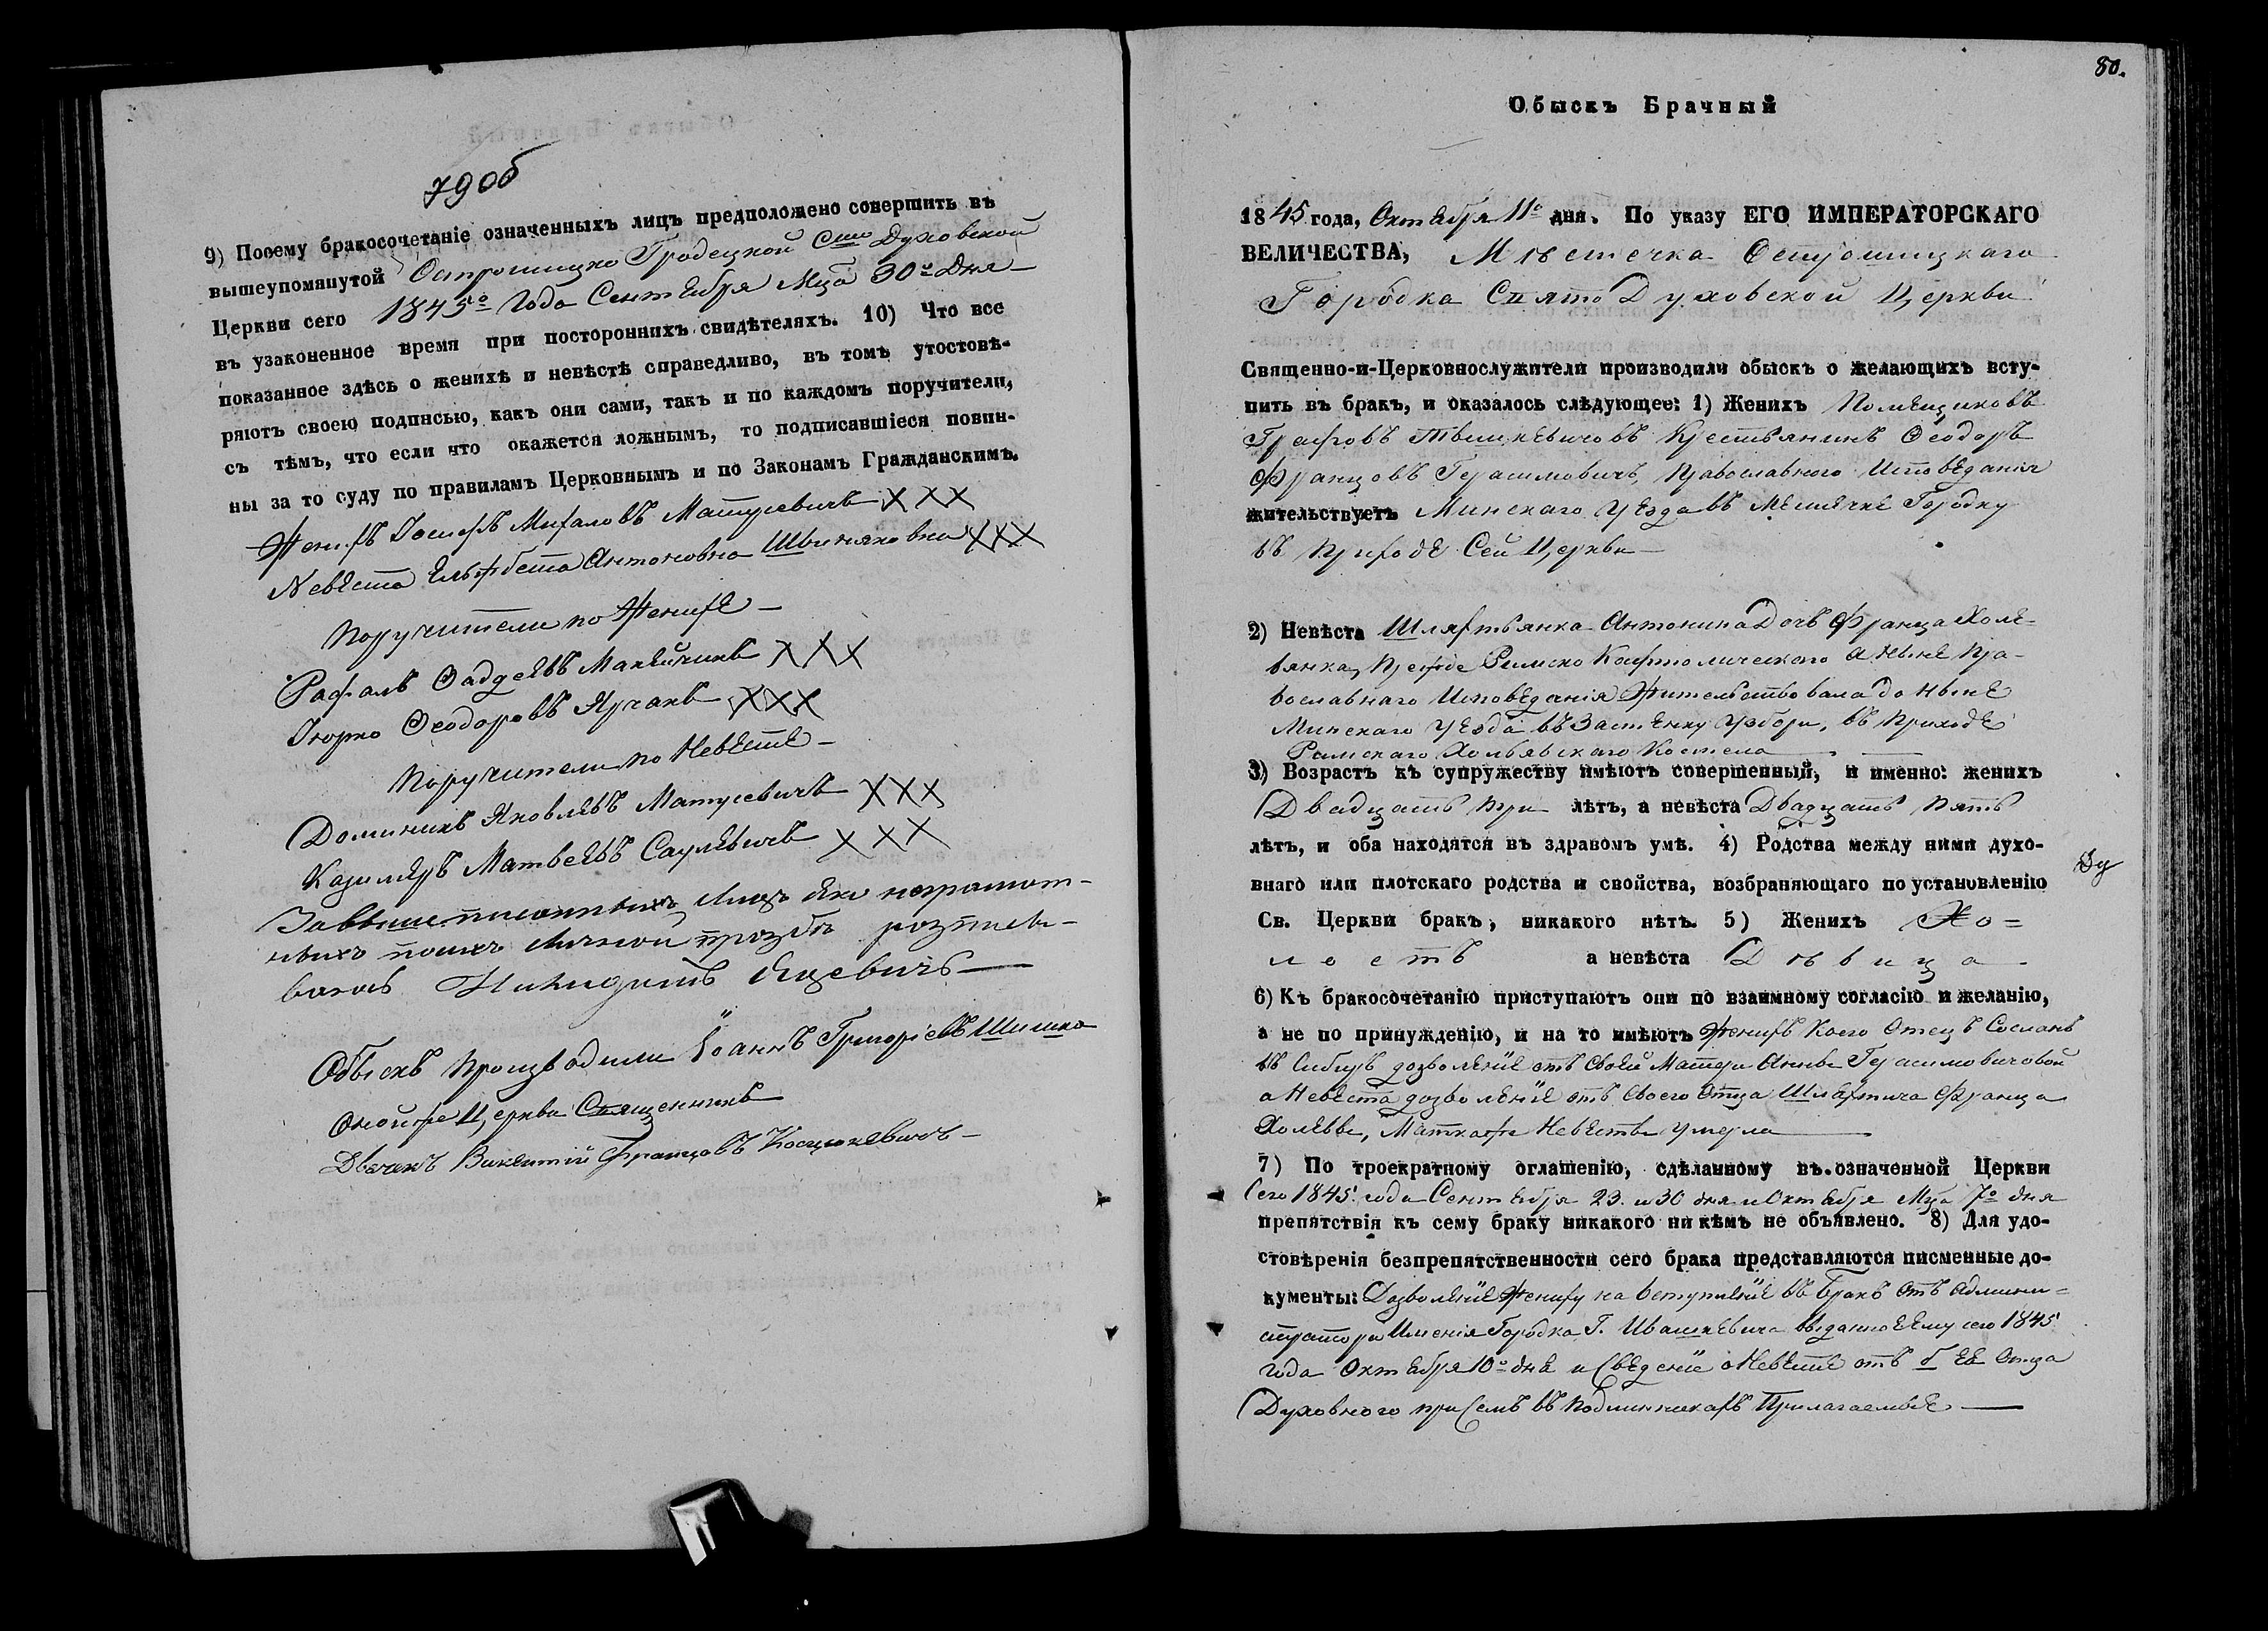 79 об
9) Посему бракосочетаніе означенныхъ лицъ предположено совершить въ
вышеупомянутой Острошицко Гродецкой Сто Духовской
Церкви сего 1845º года Сентября Мца 30º дня
въ узаконенное время при постороннихъ свидѣтеляхъ. 10) Что все
показанное здѣсь о женихѣ и невѣстѣ справедливо, въ томъ утостовѣ-
ряютъ своею подписью, какъ они сами, такъ и по каждомъ поручители,
съ тѣмъ, что если что окажется ложнымъ, то подписавшіеся повин-
ны за то суду по правиламъ Церковнымъ и по Законамъ Гражданскимъ.
Женихъ Іосифъ Михаловъ Матусевичъ XXX
Невеста Антоновна XXX
Поручители по Женихе
Рафалъ Фадеевъ XXX
Юрко Феодоровъ Ярчакъ XXX
Поручители по Невесте
Доминикъ Яковлевъ Матусевичъ XXX
Казимеръ Матвеевъ Саулевичъ XXX
За вышеписанныхъ лицъ яко неграмот-
ныхъ по ихъ личной прозбе росписи-
вался Яцевичъ
Обыскъ Производили Іоаннъ Григоріевъ Шишко
Оной же Церкви Священникъ
Дьячекъ Викентій Францовъ Косцюкевичъ
80.
Обыскъ Брачный
1845 года, Октября 11º дня. По указу ЕГО ИМПЕРАТОРСКАГО
ВЕЛИЧЕСТВА, Мѣстечка Острошицкаго
Городка Свято Духовской Церкви
Священно-и-Церковнослужители производили обыскъ о желающихъ всту-
пить въ бракъ, и оказалось слѣдующее: 1) Женихъ Помещиковъ
Графовъ Тышкевичовъ Крестьянинъ Феодоръ
Францовъ Герасимовичъ, Православного Исповеданія
жительствуетъ Минскаго Уезда въ Местечке Городку
въ Приходе Сей Церкви
2) Невѣста Шляхтянка Антонина Дочь Франца Холе-
вянка, Прежде Римско Кафтолическаго а ныне Пра-
вославнаго Исповеданія Жительствовала до ныне
Минскаго Уезда въ Застенку Узборы, въ Приходе
Римскаго Костела
3) Возрастъ къ супружеству имѣютъ совершенный, и именно: женихъ
Двадцать три лѣтъ, а невѣста Двадцать пять
лѣтъ, и оба находятся въ здравомъ умѣ. 4) Родства между ними духо-
внаго или плотскаго родства и свойства, возбраняющаго по установленію
Св. Церкви бракъ, никакого нѣтъ. 5) Женихъ Хо=
лостъ а невѣста Дѣвица
6) Къ бракосочетанію приступаютъ они по взаимному согласію и желанію,
а не по принужденію, и на то имѣютъ Женихъ Коего Отецъ Сосланъ
въ Сибирь дозволеніе отъ своей Матери Анны Герасимовичовой
а Невеста дозволеніе отъ своего Отца Шляхтича Франца
Холевы, Матка же Невесты умерла
7) По троекратному оглашенію, сдѣланному въ означенной Церкви
Сего 1845 года Сентября 23. и 30 дня и Октября Мца 7º дня
препятствія къ сему браку никакого ни кѣмъ не объявлено. 8) Для удо-
стовѣренія безпрепятственности сего брака представляются писменные до-
кументы: Дозволеніе Жениху на вступленіе въ Бракъ отъ Админи=
стратора Именія Городка Г. Ивашкевича выданное Ему сего 1845
года Октября 10º дня и Сведеніе о Невесте отъ Ее Отца
Духовного при Семъ въ Подлинникахъ Прилагаемые